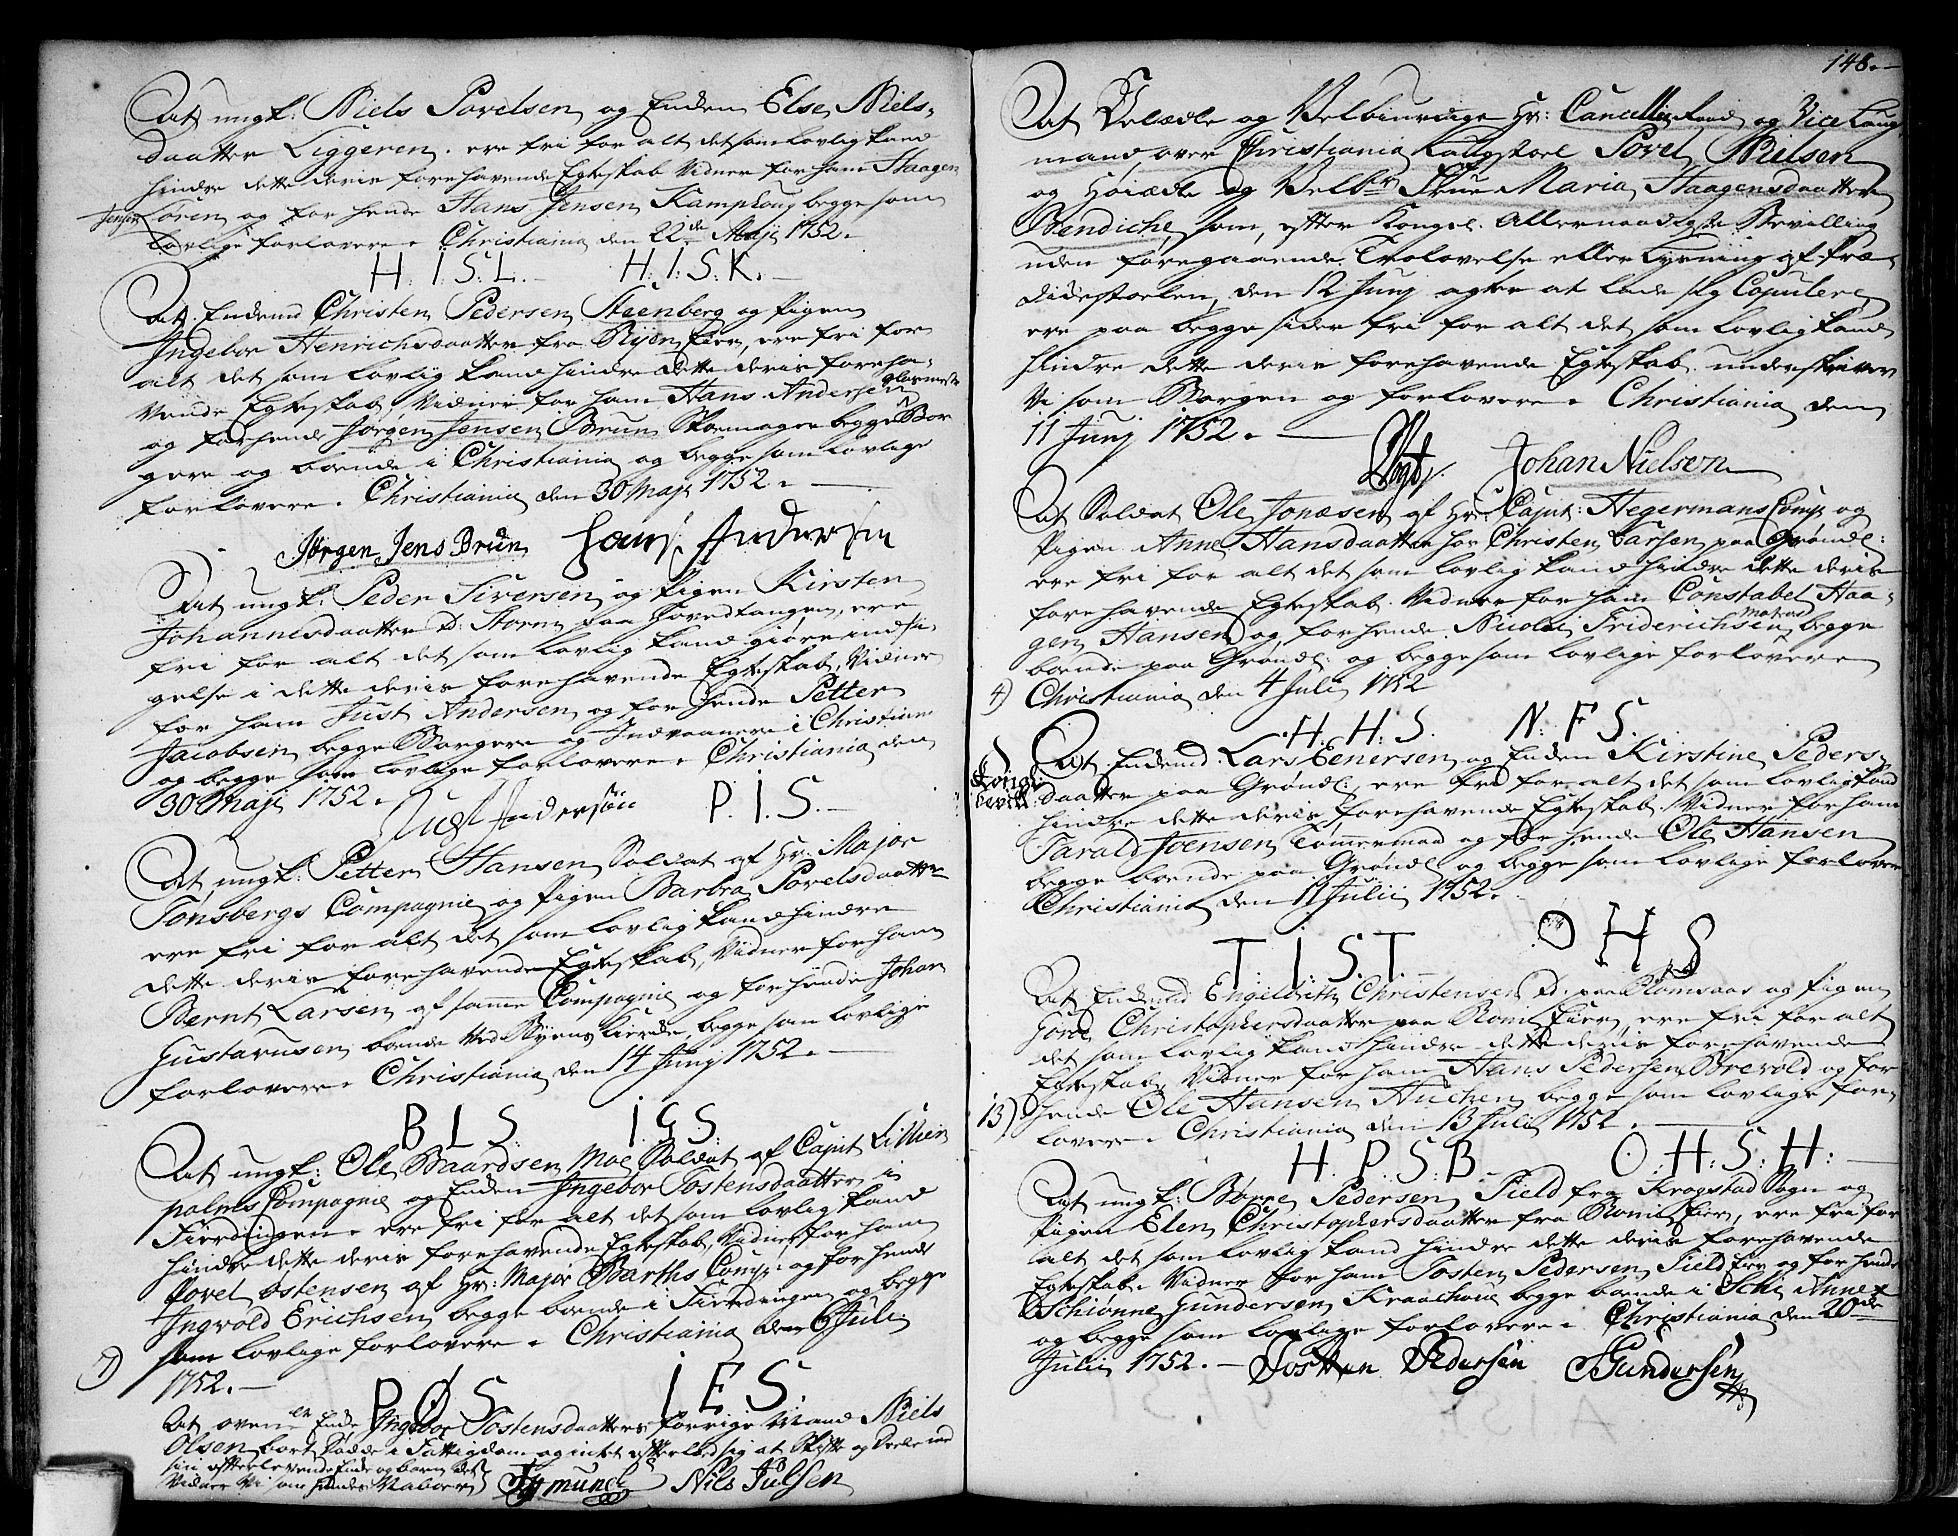 At ungk: Niels Povelsen og Enken Else Niels-
daatter Liggeren, ere fri for alt det som lovlig kand
hindre dette deris forehavende Egteskab Vidner for ham Haagen
Jensen Lören og for hende Hans Jensen Kamphoug begge som
lovlige forlovere. Christiania den 22de Maji 1752.
H. I. S. L. H. I. S. K.
At Enkemd Christen Pedersen Steenberg og Pigen
Ingebor Henrichsdaatter fra Ryen Eier, ere fri for
alt det som lovlig kand hindre dette deris foreha-
vende Egteskab, Vidner for ham Hans Andersen glarmester
og for hende Jörgen Jensen Brun Skoemager begge Bor
gere og boende i Christiania og begge som lovlige
forlovere. Christiania den 30 Maji 1752.
Jörgen Jens Brun Hans Andersen
At ungk: Peder Siversen og Pigen Kirsten
Johannesdaatter D: Storm paa Hovedtangen, ere
fri for alt det som lovlig kand giöre indsi-
gelse i dette deris forehavende Egteskab, Vidner
for ham Just Andersen og for hende Petter
Jacobsen begge Borgere og Indvaanere i Christiania
og begge som lovlige forlovere. Christiania den
30 Maji 1752.
Just Andersön P. I. S.
At ungk: Petter Hansen Soldat af Hr: Major
Tönsbergs Compagnie og Pigen Barbra Povelsdaatter
ere fri for alt det som lovlig kand hindre
dette deris forehavende Egteskab, Vidner for ham
Bernt Larsen af samme Compagnie og for hende Johan
Gustavusen boende ved Byens Kirke begge som lovlige
forlovere. Christiania den 14 Junij 1752.
B L S. I. G S.
At ungk: Ole Baardsen Moe Soldat af Capit Lillien
palms Compagnie og Enken Ingebor Tostensdaatter i
Fierdingen. ere fri for alt det som lovlig kand
hindre dette deris forehavende Egteskab, Vidner for ham
Povel Ostensen af Hr: Major Barths Comp: og for hende
Ingvold Erichsen begge boende i Fierdingen og begge
som lovlige forlovere. Christiania den 6 Juli
7) 1752.
P O S. I E S.
At oven Enke Ingebor Tostensdaatters forrige Mand Niels
Olsen bort döde i Fattigdom og intet efterlod sig at Skifte og Deele imod
sin efterlevende Enke og barn det
Vidner Vi som hendes Naboer Nils Julsen
148.
At Velædle og Velbiurdige Hr: Cancellie Raad og Vice Laug
mand over Christiania Laugstoel Povel Nielsen
og Höiædle og Velbr Frue Maria Haagensdaatter
Bendiche, som, efter Kongel: Allernaadigste Bevilling
uden foregaaende Trolovelse eller Lysning af Præ-
dikestoelen, den 12 Junij agter at lade sig Copulere,
ere paa begge sider fri for alt det som lovlig kand
hindre dette deris forehavende Egteskab, underskriver
Vi som Borgen og forlovere. Christiania den
11 Junij 1752.
Vogt. Johan Nielsen
At Soldat Ole Jonæsen af Hr: Capit: Hegermans Comp: og
Pigen Anne Hansdaatter hos Christen Larsen paa Grönl:
ere fri for alt det som lovlig kand hindre dette deris
forehavende Egteskab. Vidner for ham Constabel Haa-
gen Hansen og for hende Nicolai Friderichsen begge
boende paa Grönl: og begge som lovlige forlovere
4) Christiania den 4 Juli 1752
H. H. S. N. F S.
At Enkemd Lars Enersen og Enken Kirstine Peders
Kongl: bevill: daatter paa Grönl: ere fri for alt det som lovlig kand
hindre dette deris forehavende Egteskab. Vidner for ham
Tarald Joensen Tömermand og for hende Ole Hansen
begge boende paa Grönl: og begge som lovlige forlovere
Christiania den 11 Julii 1752.
T. I. S. T. O H S
At Enkemd Engelbrth Christensen D: paa Blomsaas og Pigen
Goro Christophersdaatter paa Roni Eier, ere fri for alt
det som lovlig kand hindre dette deris forehavende
Egteskab. Vidner for ham Hans Pedersen Brevold og for
13) hende Ole Hansen Hueken begge som lovlige for-
lovere. Christiania den 13 Julii 1752.
H. P. S. B. O. H. S. H:
At ungk: Börre Pedersen Field fra Krogstad Sogn og
Pigen Elen Christophersdaatter fra Roni Eier, ere fri for
alt det som lovlig kand hindre dette deris forehavende
Egteskab. Vidner for ham Tosten Pedersen Field Eier og for hende
Schiönne Gundersen Kraachoue begge boende i Schi Annex
og begge som lovlige forlovere. Christiania den 20de
Julii 1752. Tosten Pedersen SGundersen